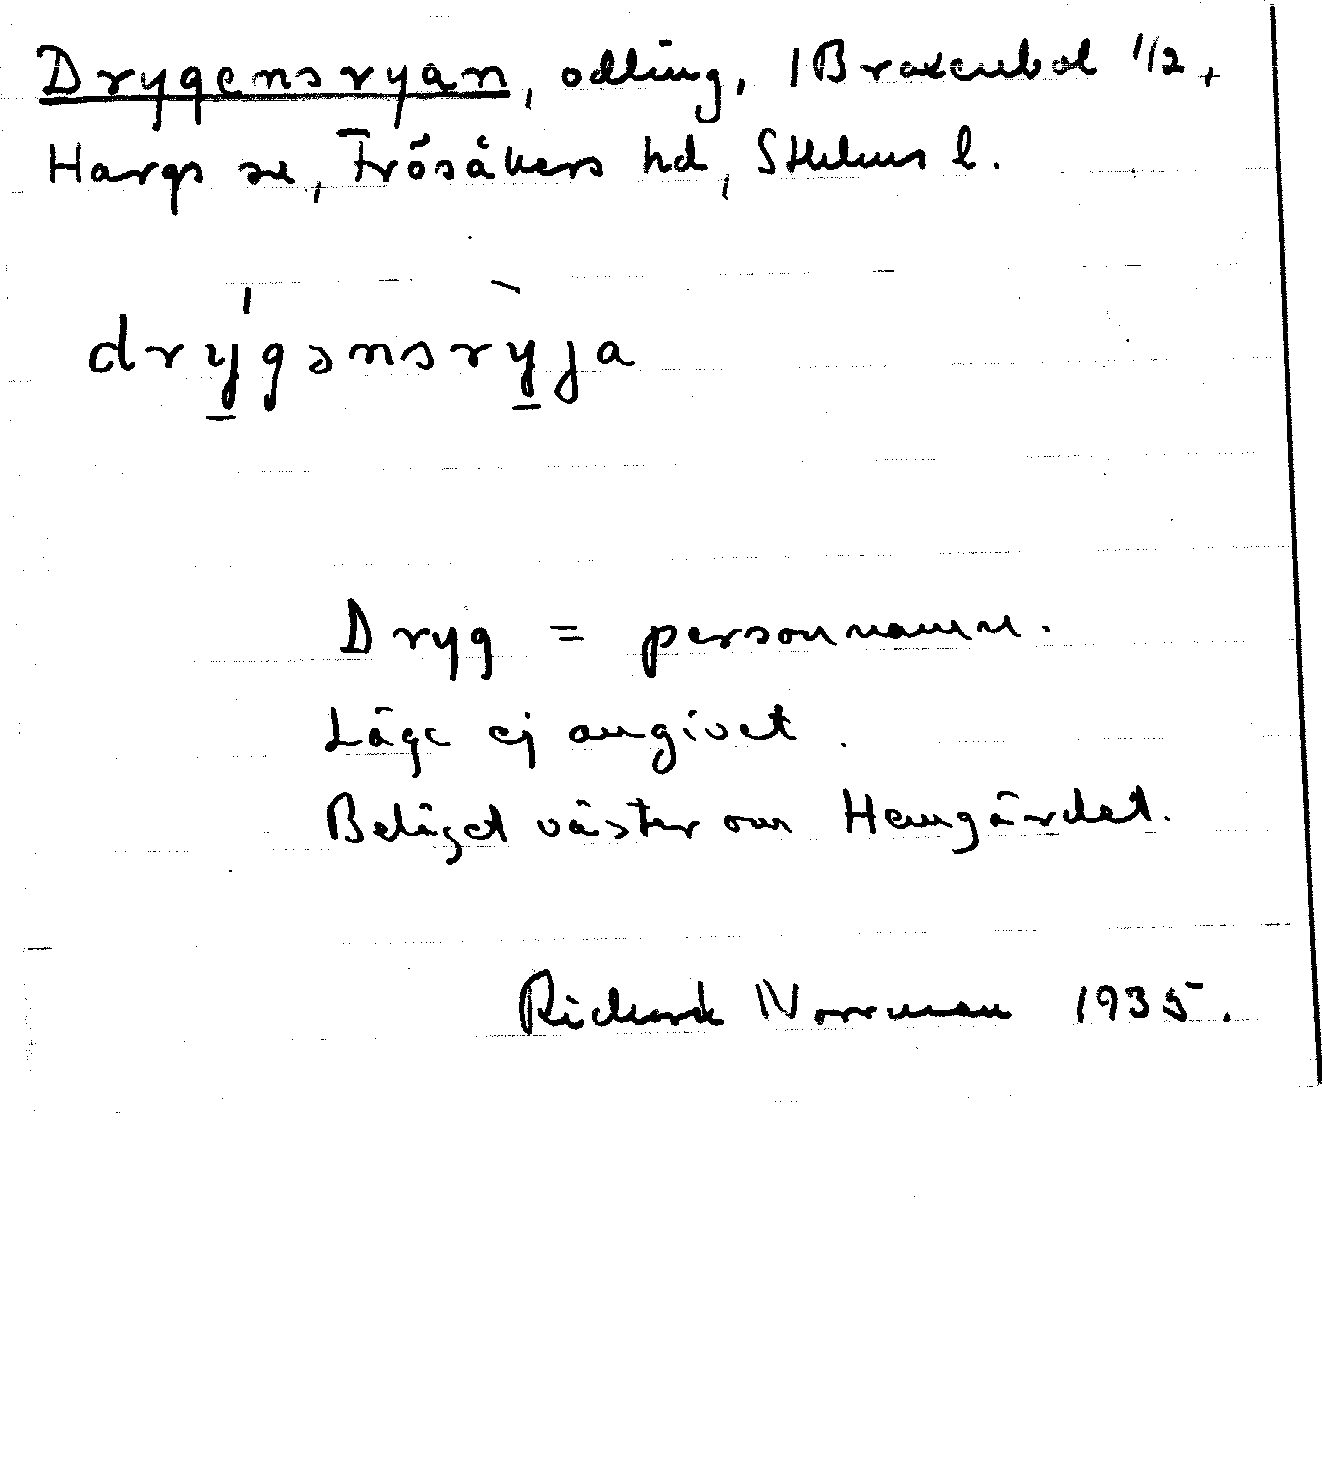 Drygensryan, odling, 1 Braxenbol 1/2,
Hargs sn, Frösåkers hd, Sthlms l.
drýgənsrỳja
Dryg = personnamn.
Läge ej angivet.
Beläget väster om Hemgärdet.
Rickard Norrman 1935.